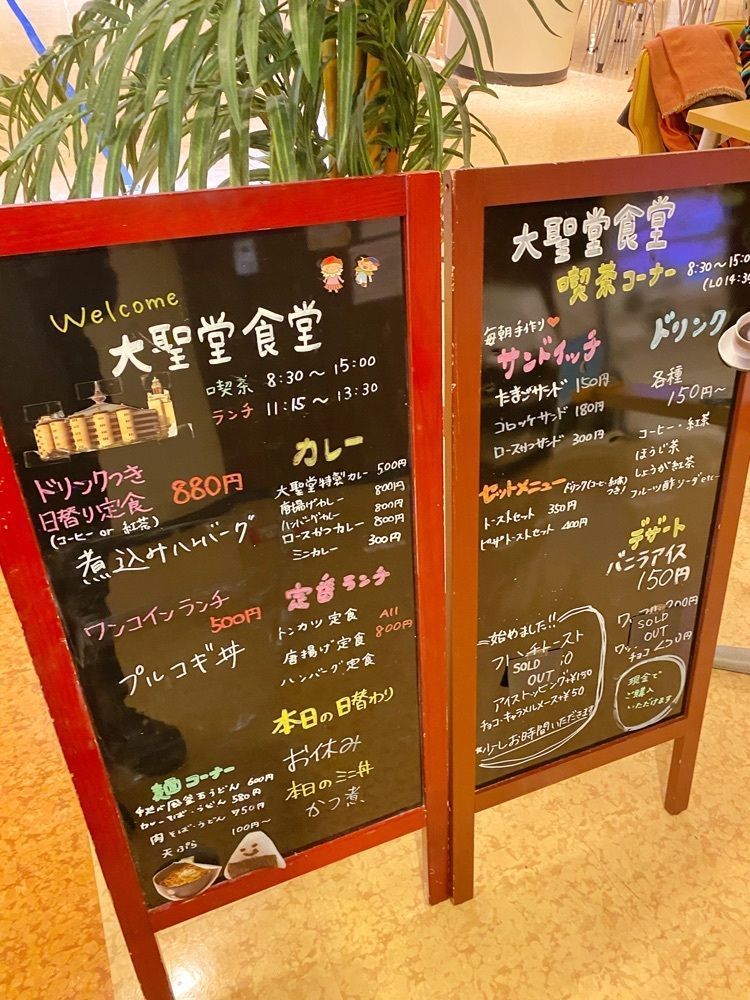 Welcome
大聖堂食堂
喫茶 8:30～15:00
ランチ 11:15～13:30
ドリンクつき
日替り定食 880円
(コーヒー or 紅茶)
煮込みハンバーグ
ワンコインランチ
500円
プルコギ丼
麺コーナー
うどん 600円
カレーそば・うどん 580円
肉そば・うどん 750円
天ぷら 100円～
カレー
大聖堂特製カレー 500円
唐揚げカレー 800円
ハンバーグカレー 800円
ロースかつカレー 800円
ミニカレー 300円
定番ランチ
トンカツ定食
唐揚げ定食
ハンバーグ定食
All
800円
本日の日替わり
お休み
本日のミニ丼
かつ煮
大聖堂食堂
喫茶コーナー 8:30～15:00
(LO14:3
毎朝手作り♥
サンドイッチ
たまごサンド 150円
コロッケサンド 180円
ロースかつサンド 300円
セットメニュー ドリンク(コーヒー・紅茶)つき!
トーストセット 350円
ピザトーストセット 400円
始めました!!
フレンチトースト
SOLD
OUT
アイストッピング+¥150
チョコ・キャラメルソース+¥50
※少しお時間いただきます
ドリンク
各種
150円～
コーヒー・紅茶
ほうじ茶
しょうが紅茶
フルーツ酢ソーダetc
デザート
バニラアイス
150円
SOLD
OUT
チョコ
現金で
ご購入
いただけます